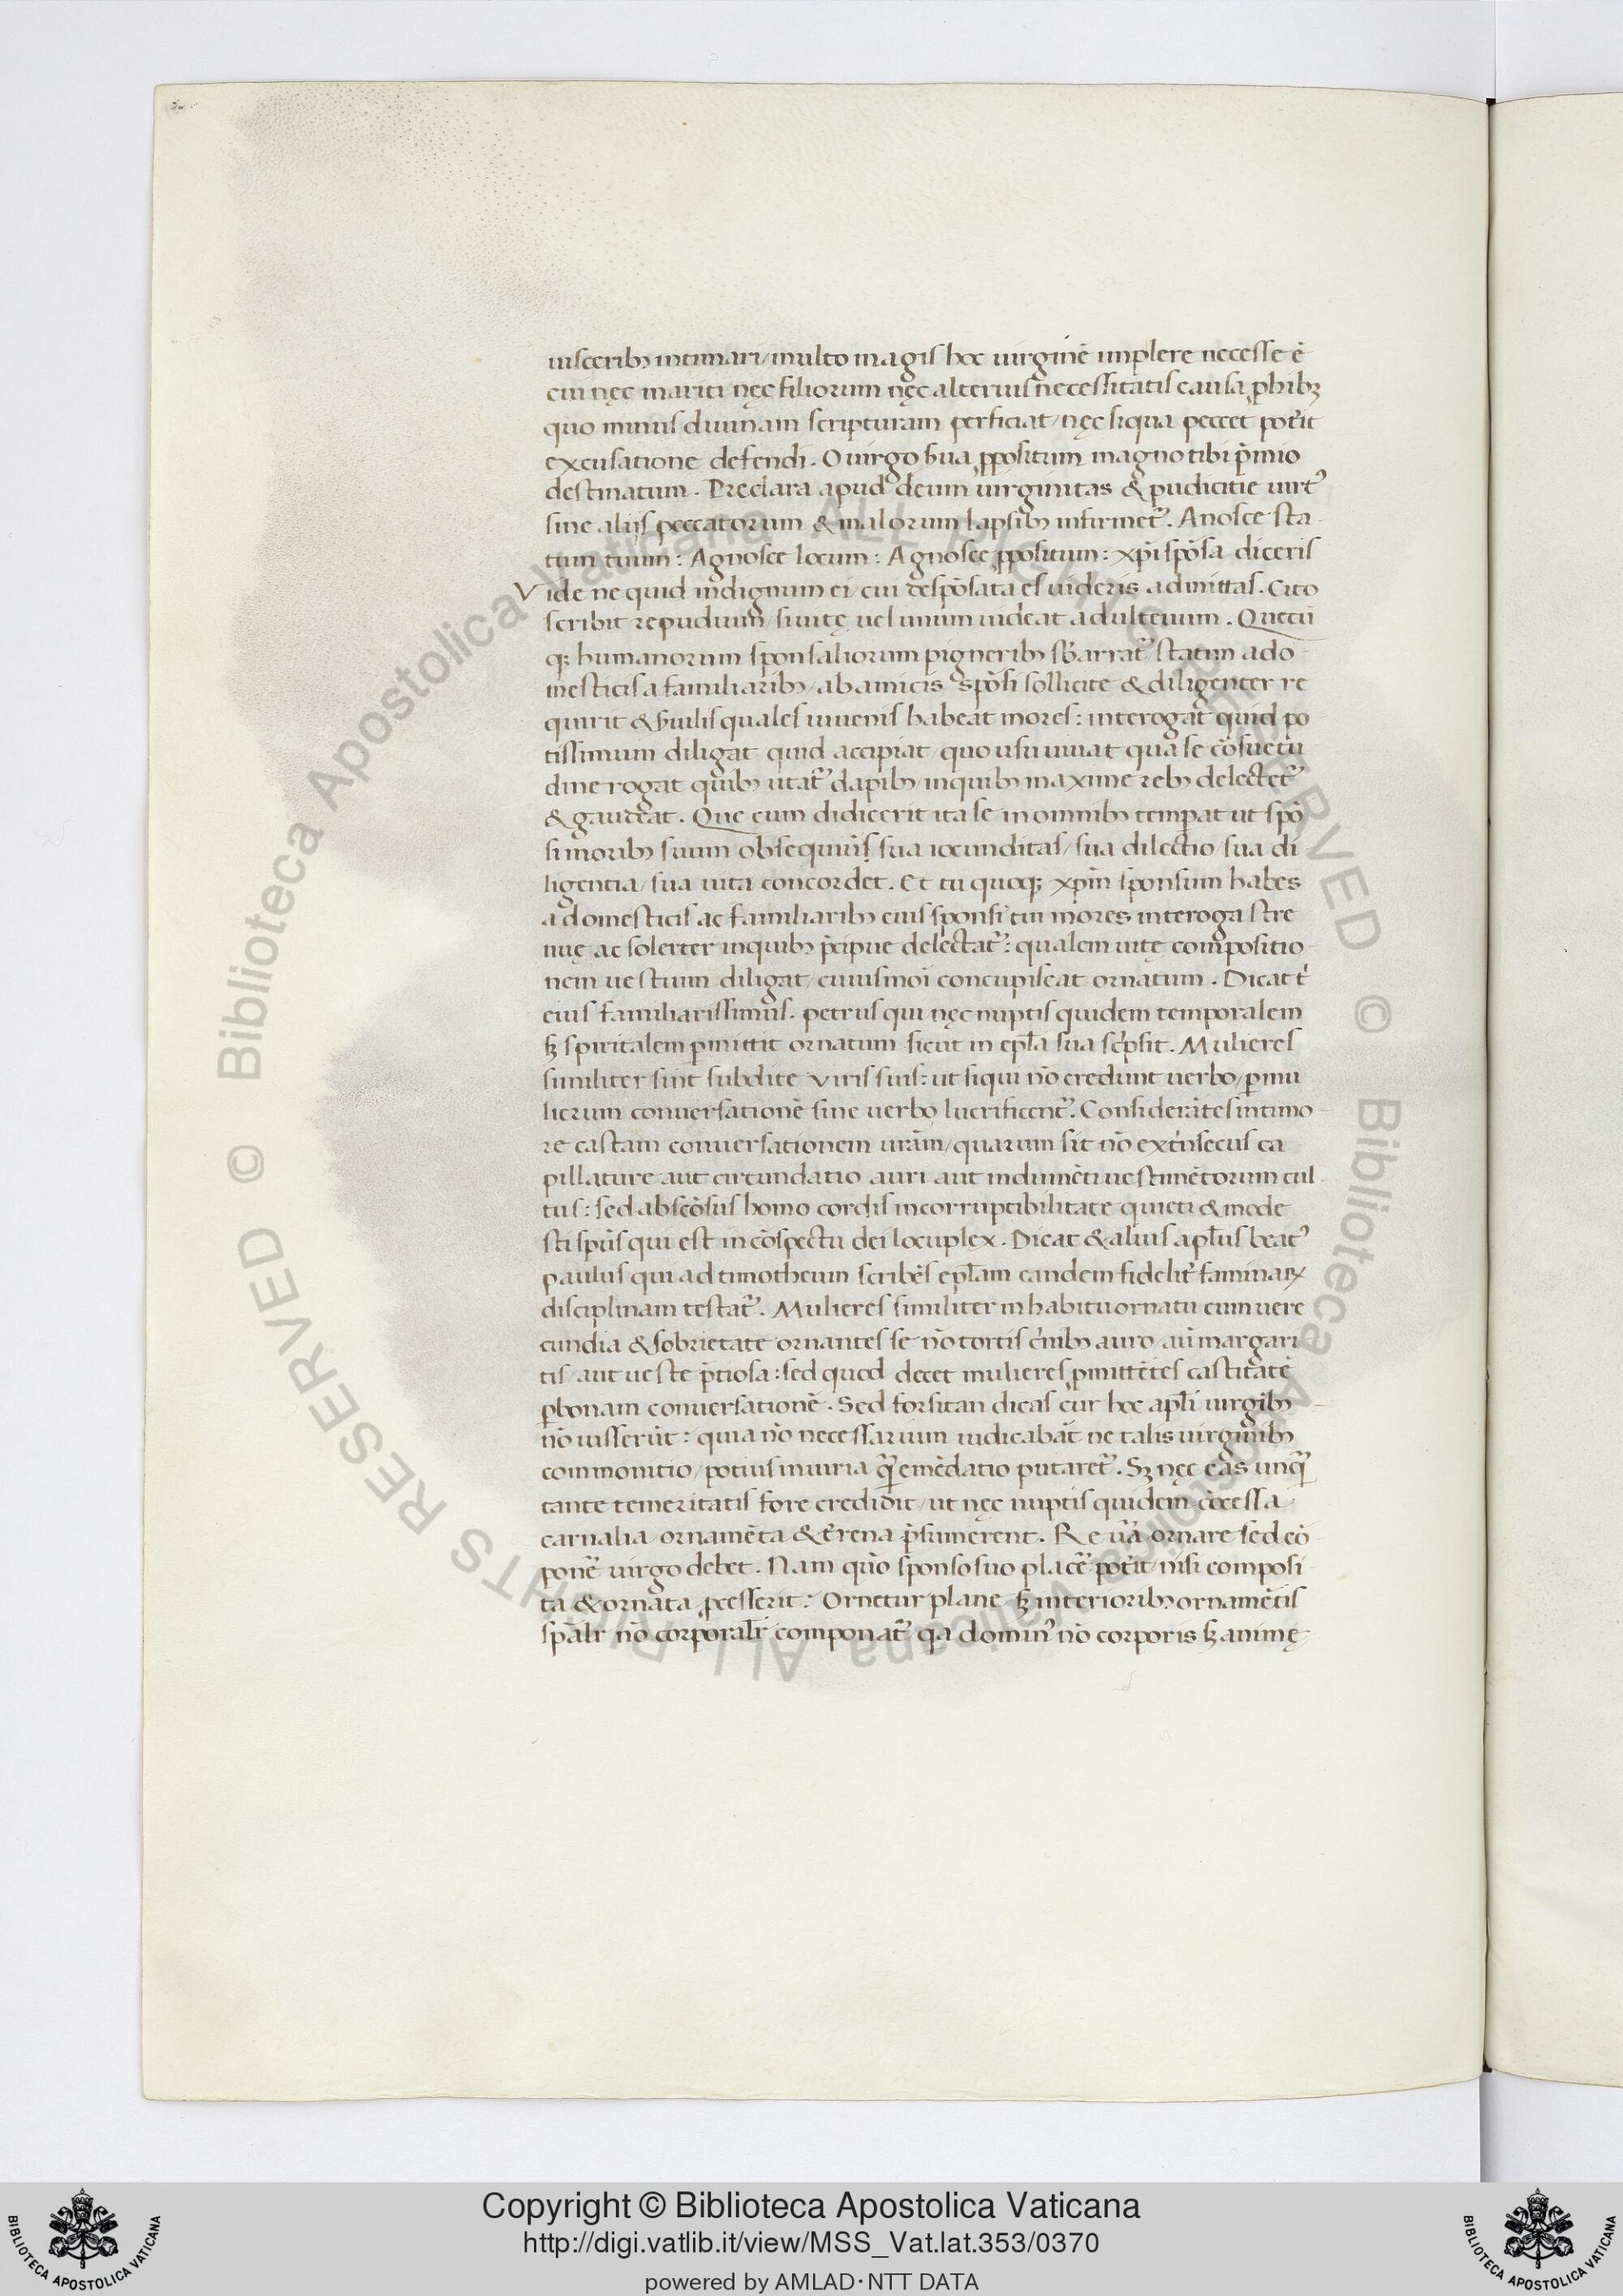 uisceribꝫ intimari / multo magis hoc uirginē implere necesse ē
cui nęc mariti nęc filiorum nęc alterius necessitatis causa ꝓhibꝫ
quo minus diuinam scripturam perficiat / nęc siqua peccet pot̕it
excusatione defendi. O uirgo ẜua ꝓpositum magno tibi p̄mio
destinatum. Preclara apud deum uirginitas & pudicitie uirt᾽
sine aliis peccatorum & malorum lapsibꝫ infirmet᷑. Anosce sta
tum tuum: Agnosce locum: Agnosce ꝓpositum: xp̄i spō̄sa diceris
Vide ne quid indignum ei / cui despōsata es uideris admittas. Cito
scribit repudium / si in te uel unum uideat adulterium. Quecū
qꝫ humanorum sponsaliorum pigneribꝫ sƀarrat᷑ statim a do
mesticis a familiaribꝫ / ab amicis spōsi sollicite & diligenter re
quirit & ẜuilis quales iuuenis habeat mores: interogat quid po
tissimum diligat quid accipiat / quo usu uiuat qua se cōsuetu
dine rogat quibꝫ utat᷑ dapibꝫ / inquibꝫ maxime rebꝫ delectet᷑
& gaudeat. Que cum didicerit ita se in omnibꝫ temꝑat ut spō
si moribꝫ suum obsequiuꝫ sua iocunditas / sua dilectio / sua di
ligentia / sua uita concordet. Et tu quoqꝫ xp̄m sponsum habes
a domesticis ac familiaribꝫ eius sponsi tui mores interoga stre
nuę ac solerter inquibꝫ p̄cipue delectat᷑: qualem uitę compositio
nem uestium diligat / cuiusmōi concupiscat ornatum. Dicat t̕
eius familiarissimus. petrus qui nęc nuptis quidem temporalem
sꝫ spiritalem ꝑmittit ornatum sicut in epl̄a sua sc̕psit. Mulieres
similiter sint subdite viris suis: ut siqui nō credunt uerbo / ꝑ mu
lierum conuersationē sine uerbo lucrificent᷑. Considerātes in timo
re castam conuersationem ur̄am / quarum sit nō ext̕nsecus ca
pillature aut circundatio auri aut indumēti uestimētorum cul
tus: sed abscōsus homo cordis incorruptibilitate quieti & mode
sti sp̄us qui est in cōspectu dei locuplex. Dicat & alius apl̄us beat᾽
paulus qui ad timotheum scribēs epl̄am eandem fidelit̕ faminaꝝ
disciplinam testat᷑. Mulieres similiter in habitu ornatu cum uere
cundia & sobrietate ornantes se nō tortis c̕nibꝫ auro au̕ margari
tis / aut ueste p̄tiosa: sed quod decet mulieres ꝓmittētes castitatē
ꝑ bonam conuersationē. Sed forsitan dicas cur hoc apl̄i uirgibꝫ
nō iusserūt: quia nō necessarium iudicabāt ne talis uirginibꝫ
commonitio / potius iniuria q̄ꝫ emēdatio putaret᷑. Sꝫ nęc eas unq̄ꝫ
tante temeritatis fore credidit / ut nęc nuptis quidem cōcessa
carnalia ornamēta & t̕rena p̄sumerent. Re u̕a ornare sed cō
pon̄e uirgo debet. Nam quō sponso suo plac̄e pot̕it / nisi composi
ta & ornata ꝓcesserit: Ornetur plane sꝫ interioribꝫ ornamētis
sp̄alr nō corporalr componat᷑ qa domin᾽ nō corporis sꝫ animę
Copyright © Biblioteca Apostolica Vaticana
http://digi.vatlib.it/view/MSS_Vat.lat.353/0370
powered by AMLAD·NTT DATA